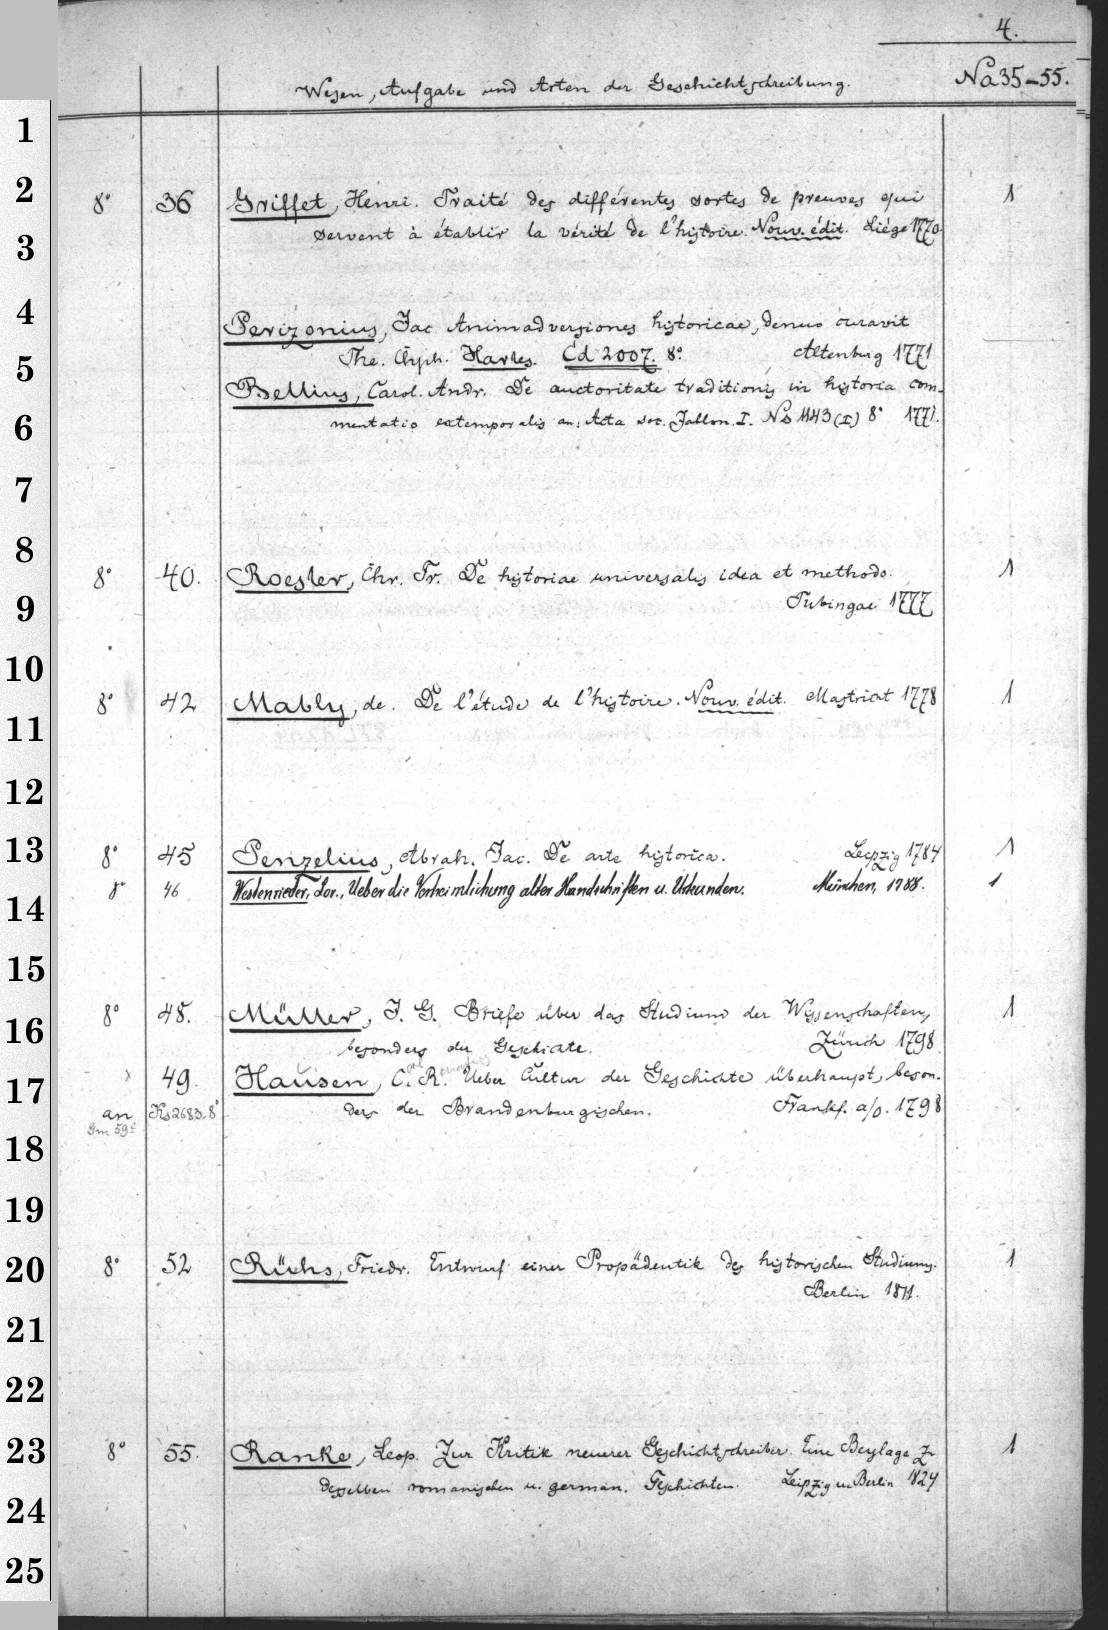 4.
Wesen, Aufgabe und Arten der Geschichtschreibung. Na 35-55.
1
2
8° 36 Griffet, Henri. Traité des différentes sortes de preuves qui 1
servent à établir la vérité de l'histoire. Nouv. édit. Liége 1770
3
4
Perizonius, Jac. Animadversiones historicae, denuo curavit
The. Chph. Harles. Cd 2007. 8° Altenburg 1771
5
Bellius, Carol. Andr. De auctoritate traditionis in historia com-
6
mentatio extemporalis an: Acta soc. Jablon. I. Ns 1143 (I) 8° 1771.
7
8
8° 40. Roesler, Chr. Fr. De historiae universalis idea et methodo. 1
9
Tubingae 1777
10
8° 42 Mably, de. De l'étude de l'histoire. Nouv. édit. Mastricht 1778 1
11
12
13
8° 45 Penzelius, Abrah. Jac. De arte historica. Leipzig 1784 1
8° 46 Westenrieder, Lor., Ueber die Verheimlichung alter Handschriften u. Urkunden. München, 1788. 1
14
15
8° 48. Müller, J. G. Briefe über das Studium der Wissenschaften, 1
16
besonders der Geschichte. Zürich 1798.
17
49. Hausen, C. R. Ueber Cultur der Geschichte überhaupt, beson-
an Ks 2683. 8° ders der Brandenburgischen. Frankf. a/O. 1798
18
19
8° 52 Rühs, Friedr. Entwurf einer Propädeutik des historischen Studiums. 1
20
Berlin 1811.
21
22
23
8° 55. Ranke, Leop. Zur Kritik neuerer Geschichtschreiber. Eine Beylage z. 1
desselben romanischen u. german. Geschichten. Leipzig u. Berlin 1824
24
25